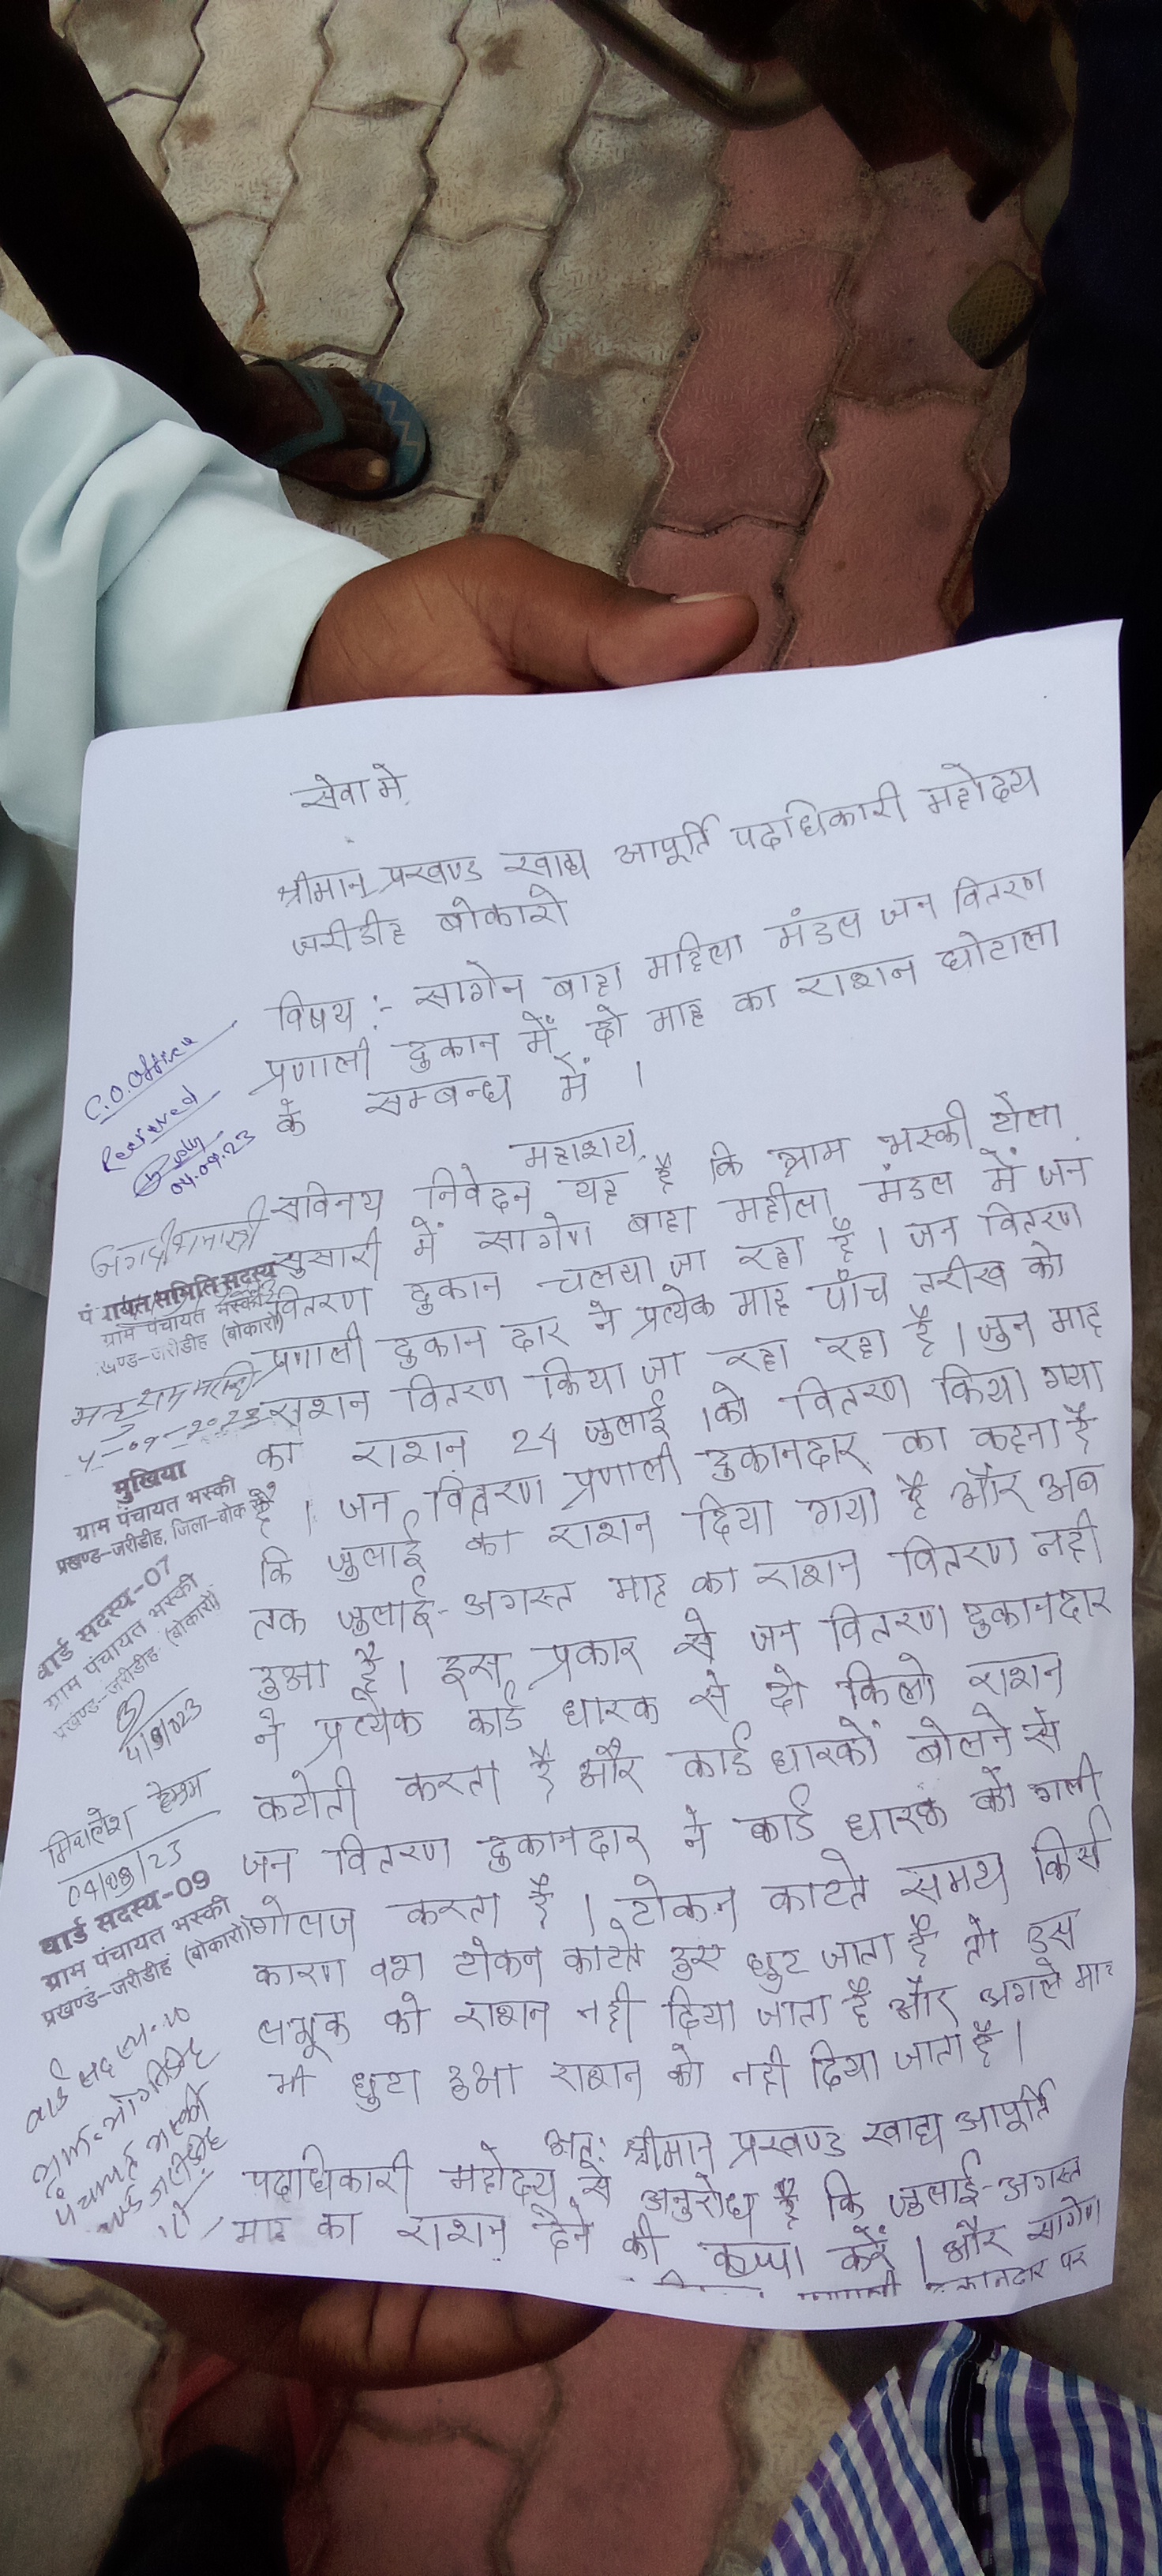 सेवा मे,
श्रीमान् प्रखण्ड खाद्य आपूर्ति पदाधिकारी महोदय
जरीडीह बोकारो
विषय :- सागेन बाहा महिला मंडल जन वितरण
प्रणाली दुकान में दो माह का राशन घोटाला
के सम्बन्ध में ।
महाशय,
सविनय निवेदन यह है कि ग्राम भस्की टोला
सुसारी में सागेण बाहा महीला मंडल में जन
वितरण दुकान चलया जा रहा है । जन वितरण
प्रणाली दुकान दार ने प्रत्येक माह पाँच तरीख को
राशन वितरण किया जा रहा रहा है । जुन माह
का राशन 24 जुलाई को वितरण किया गया
है । जन वितरण प्रणाली दुकानदार का कहना है
कि जुलाई का राशन दिया गया है और अब
तक जुलाई-अगस्त माह का राशन वितरण नही
हुआ है । इस प्रकार से जन वितरण दुकानदार
ने प्रत्येक कार्ड धारक से दो किलो राशन
कटोती करता है और कार्ड धारकों बोलने से
जन वितरण दुकानदार ने कार्ड धारक को गाली
गोलज करता है । टोकन काटते समय किसी
कारण वश टोकन काटते हुए छुट जाता है तो उस
लाभुक को राशन नही दिया जाता है और अगले माह
भी छुटा हुआ राशन को नही दिया जाता है ।
अतः श्रीमान् प्रखण्ड खाद्य आपूर्ति
पदाधिकारी महोदय से अनुरोध है कि जुलाई-अगस्त
माह का राशन देने की कृपा करें । और सागेण
प्रणाली दुकानदार पर
C.O. Office
Received
04.09.23
पंचायत समिति सदस्य
ग्राम पंचायत भस्की
प्रखण्ड-जरीडीह (बोकारो)
4-09-2023
मुखिया
ग्राम पंचायत भस्की
प्रखण्ड-जरीडीह, जिला-बोकारो
वार्ड सदस्य-07
ग्राम पंचायत भस्की
प्रखण्ड-जरीडीह (बोकारो)
4/9/023
मिथलेश हेम्ब्रम
04/09/23
वार्ड सदस्य-09
ग्राम पंचायत भस्की
प्रखण्ड-जरीडीह (बोकारो)
वार्ड सदस्य-10
पंचायत भस्की